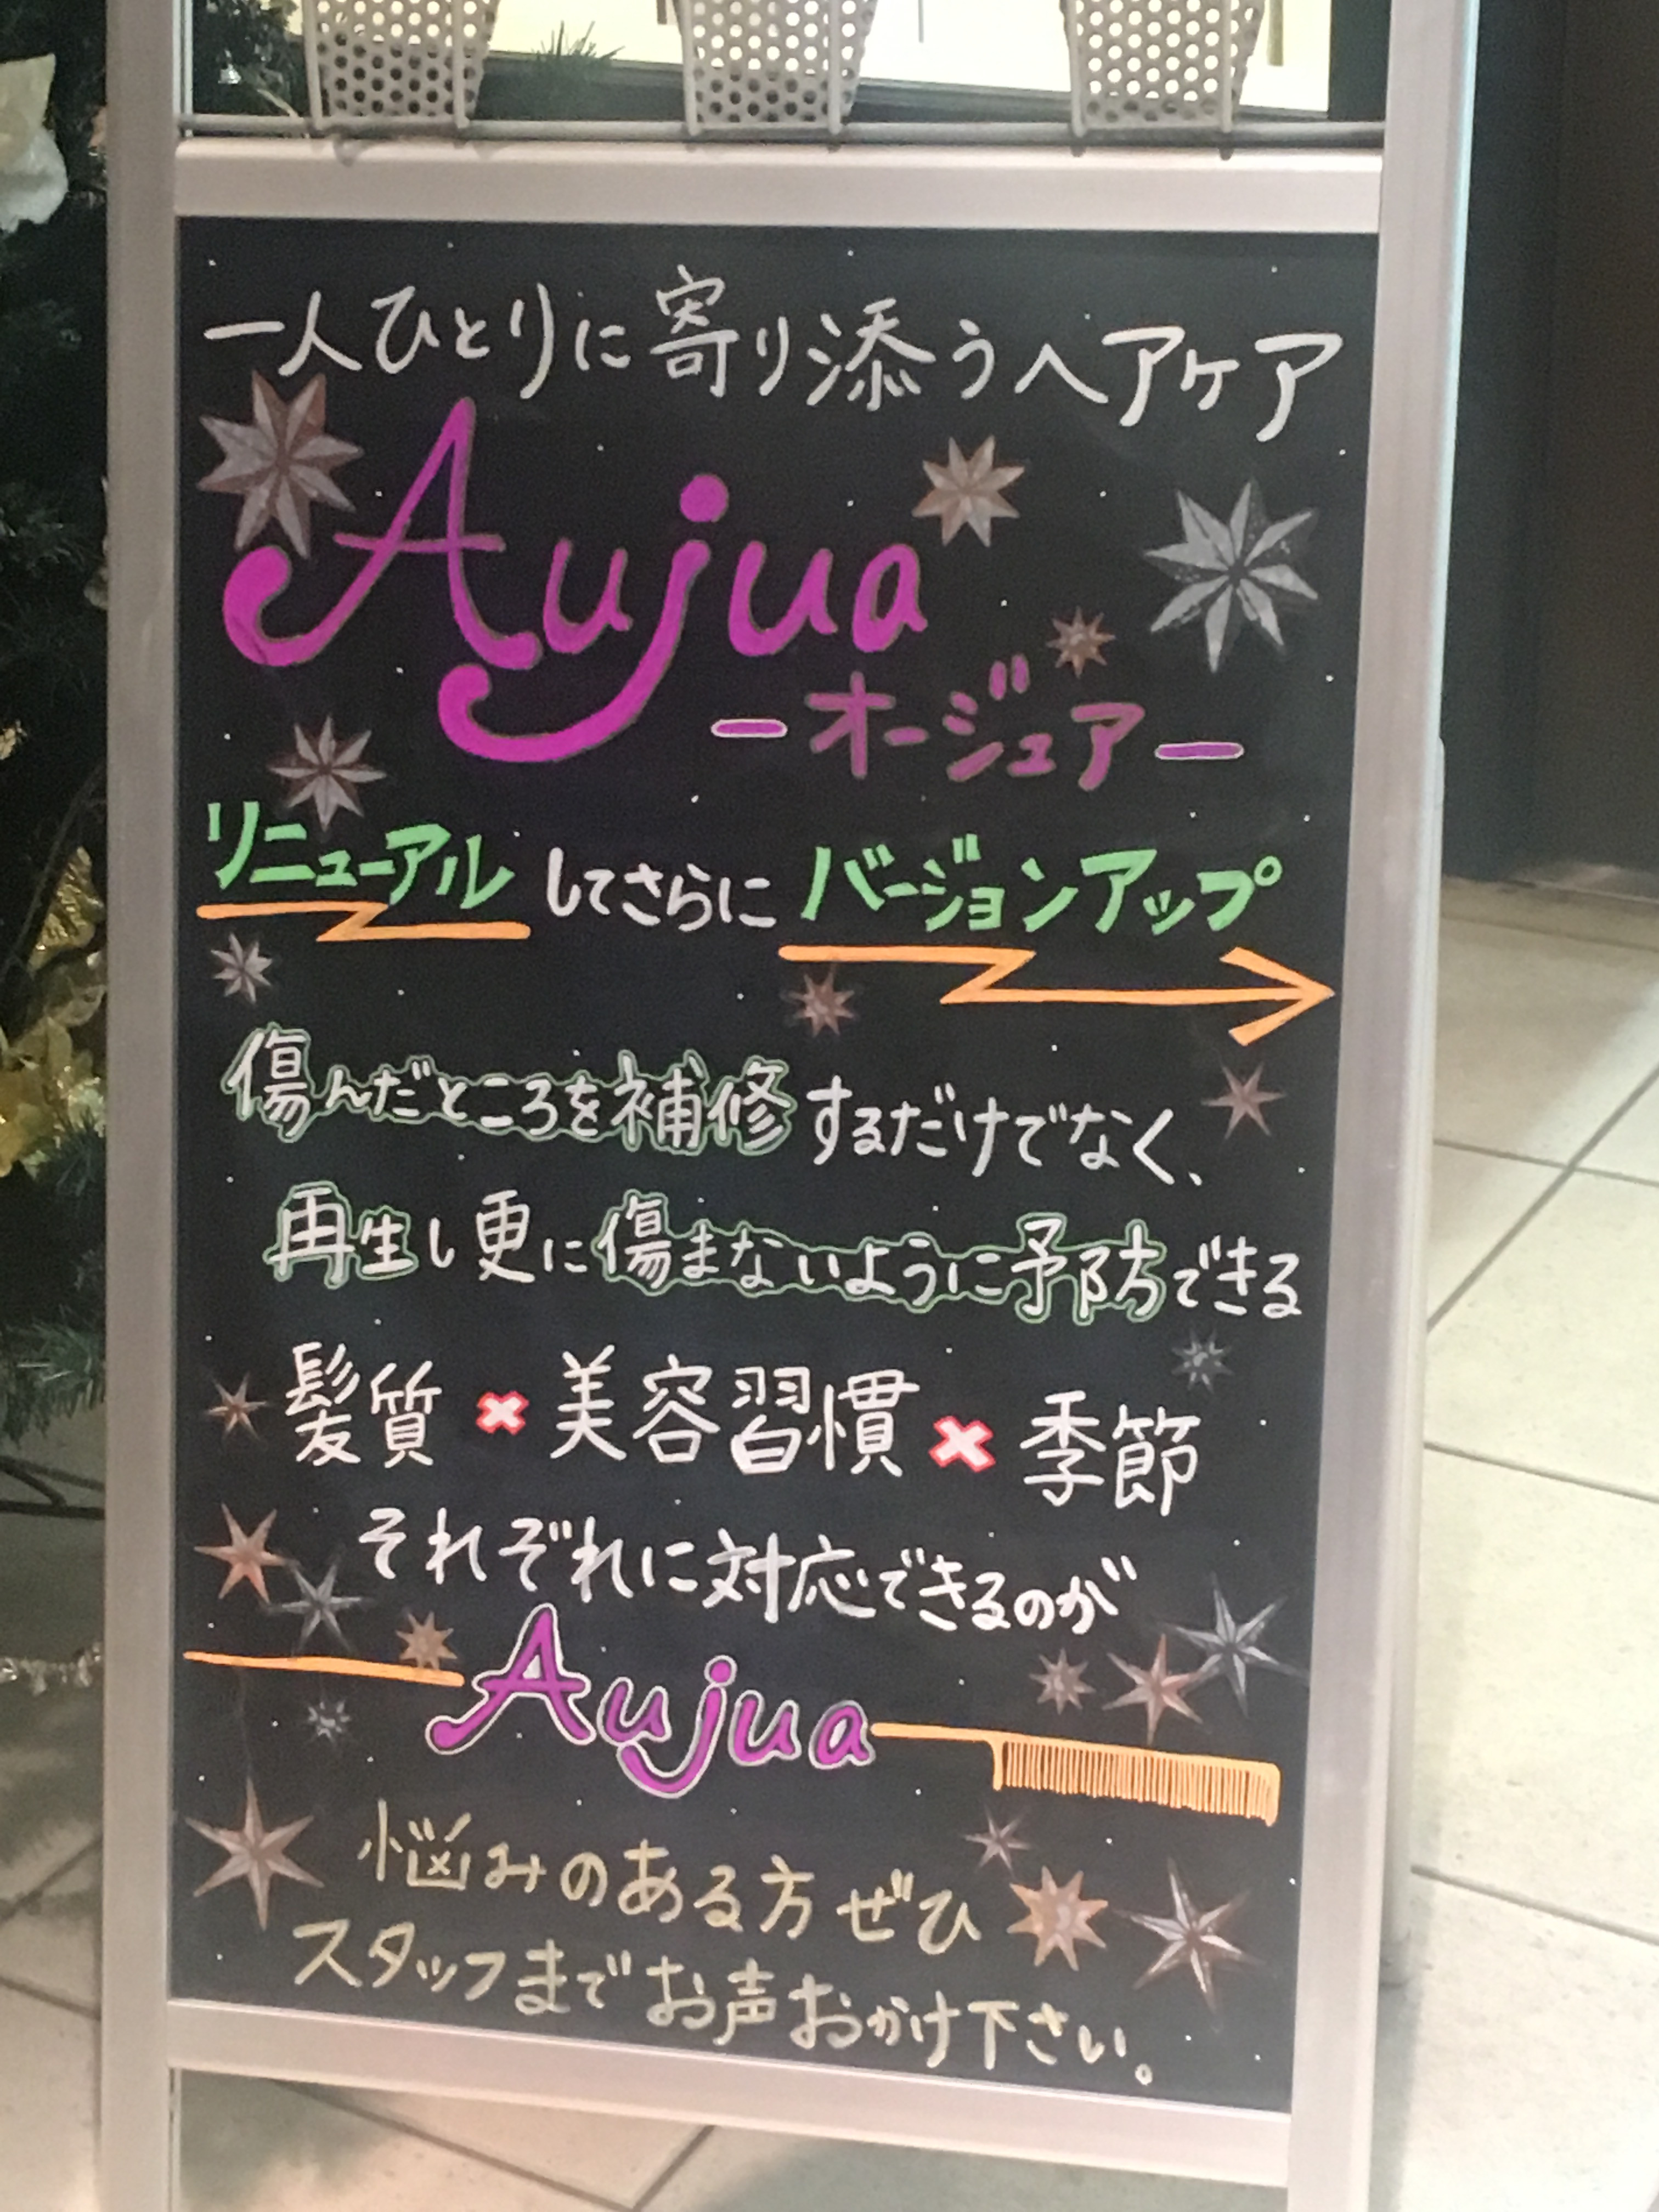 一人ひとりに寄り添うヘアケア
Aujua
－オージュア－
リニューアルしてさらにバージョンアップ
傷んだところを補修するだけでなく、
再生し更に傷まないように予防できる
髪質×美容習慣×季節
それぞれに対応できるのが
Aujua
悩みのある方ぜひ
スタッフまでお声おかけ下さい。